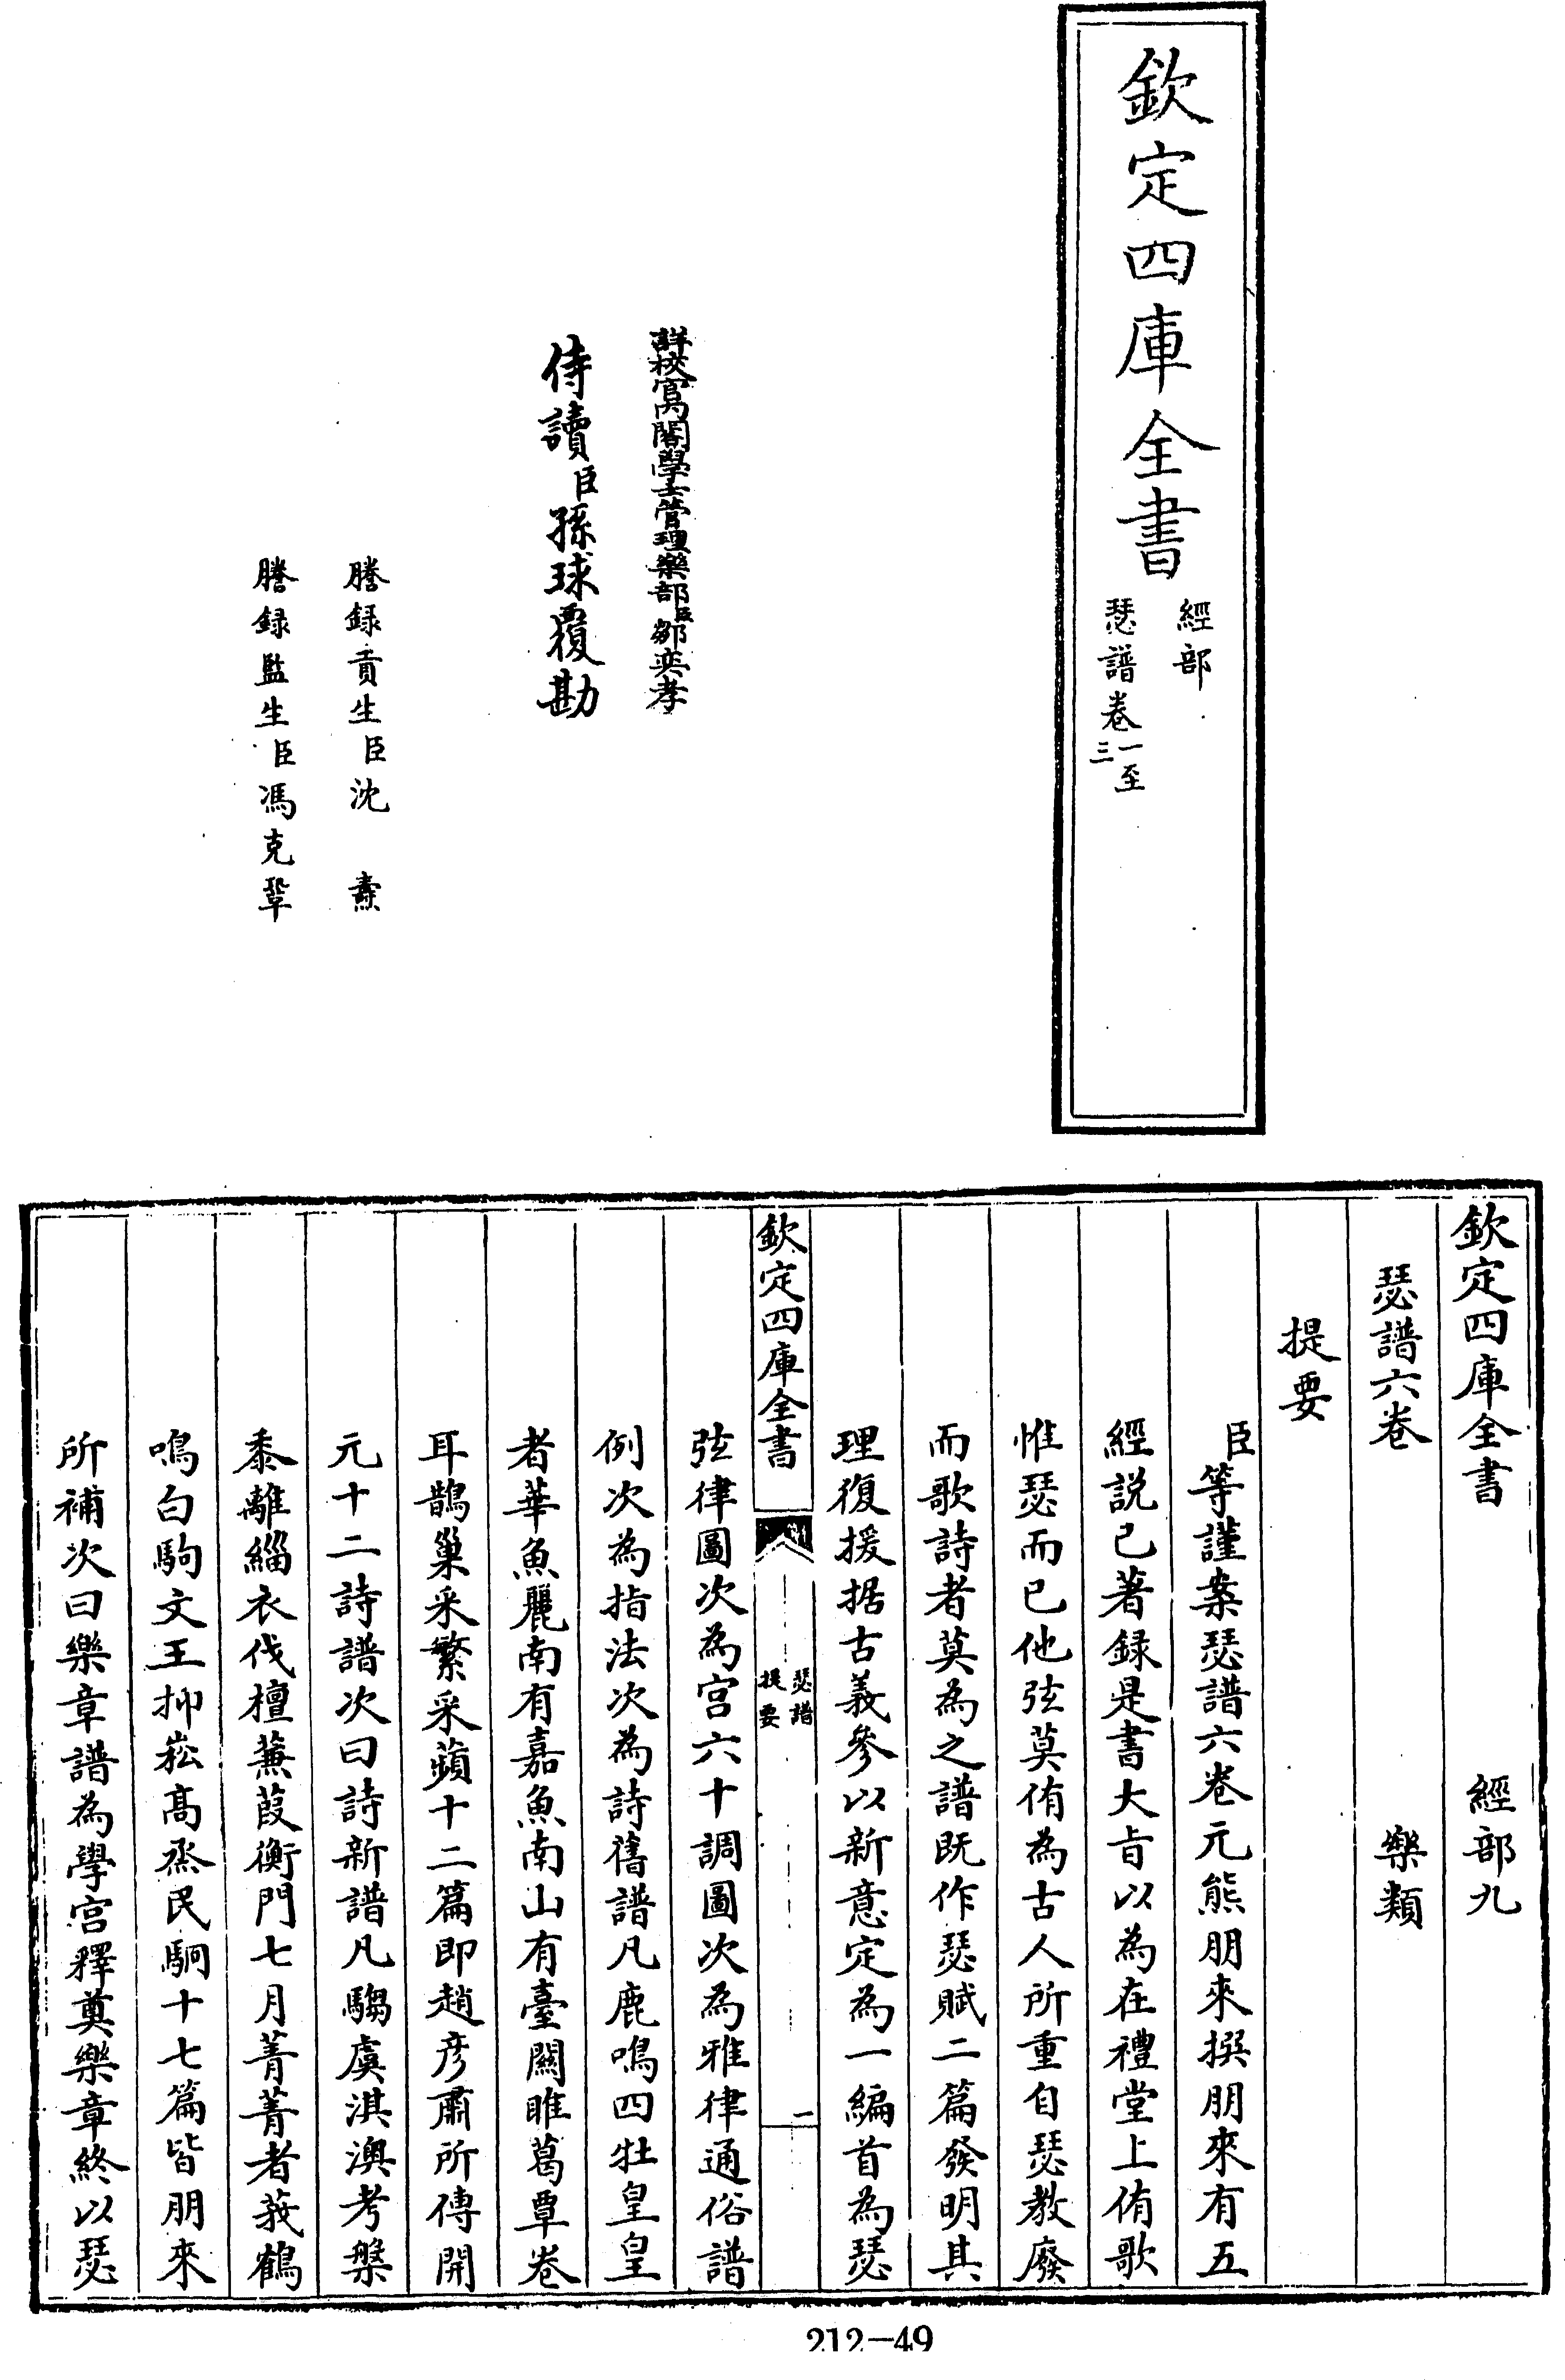 欽定四庫全書
經部
瑟譜卷一至三
詳校官內閣學士管理樂部臣鄒奕孝
侍讀臣孫球覆勘
謄録貢生臣沈 燾
謄録監生臣馮克鞏
欽定四庫全書 經部九
瑟譜六卷 樂類
提要
臣等謹案瑟譜六卷元熊朋來撰朋來有五
經説已著録是書大㫖以為在禮堂上侑歌
惟瑟而已他弦莫侑為古人所重自瑟教廢
而歌詩者莫為之譜既作瑟賦二篇發明其
理復援据古義參以新意定為一編首為瑟
欽定四庫全書
瑟譜
提要
一
弦律圖次為宫六十調圖次為雅律通俗譜
例次為指法次為詩舊譜凡鹿鳴四牡皇皇
者華魚麗南有嘉魚南山有臺關睢葛覃卷
耳鵲巢采繁采蘋十二篇即趙彦肅所傳開
元十二詩譜次曰詩新譜凡騶虞淇澳考槃
黍離緇衣伐檀蒹葭衡門七月菁菁者莪鶴
鳴白駒文王抑崧髙烝民駉十七篇皆朋來
所補次曰樂章譜為學宫釋奠樂章終以瑟
212-49